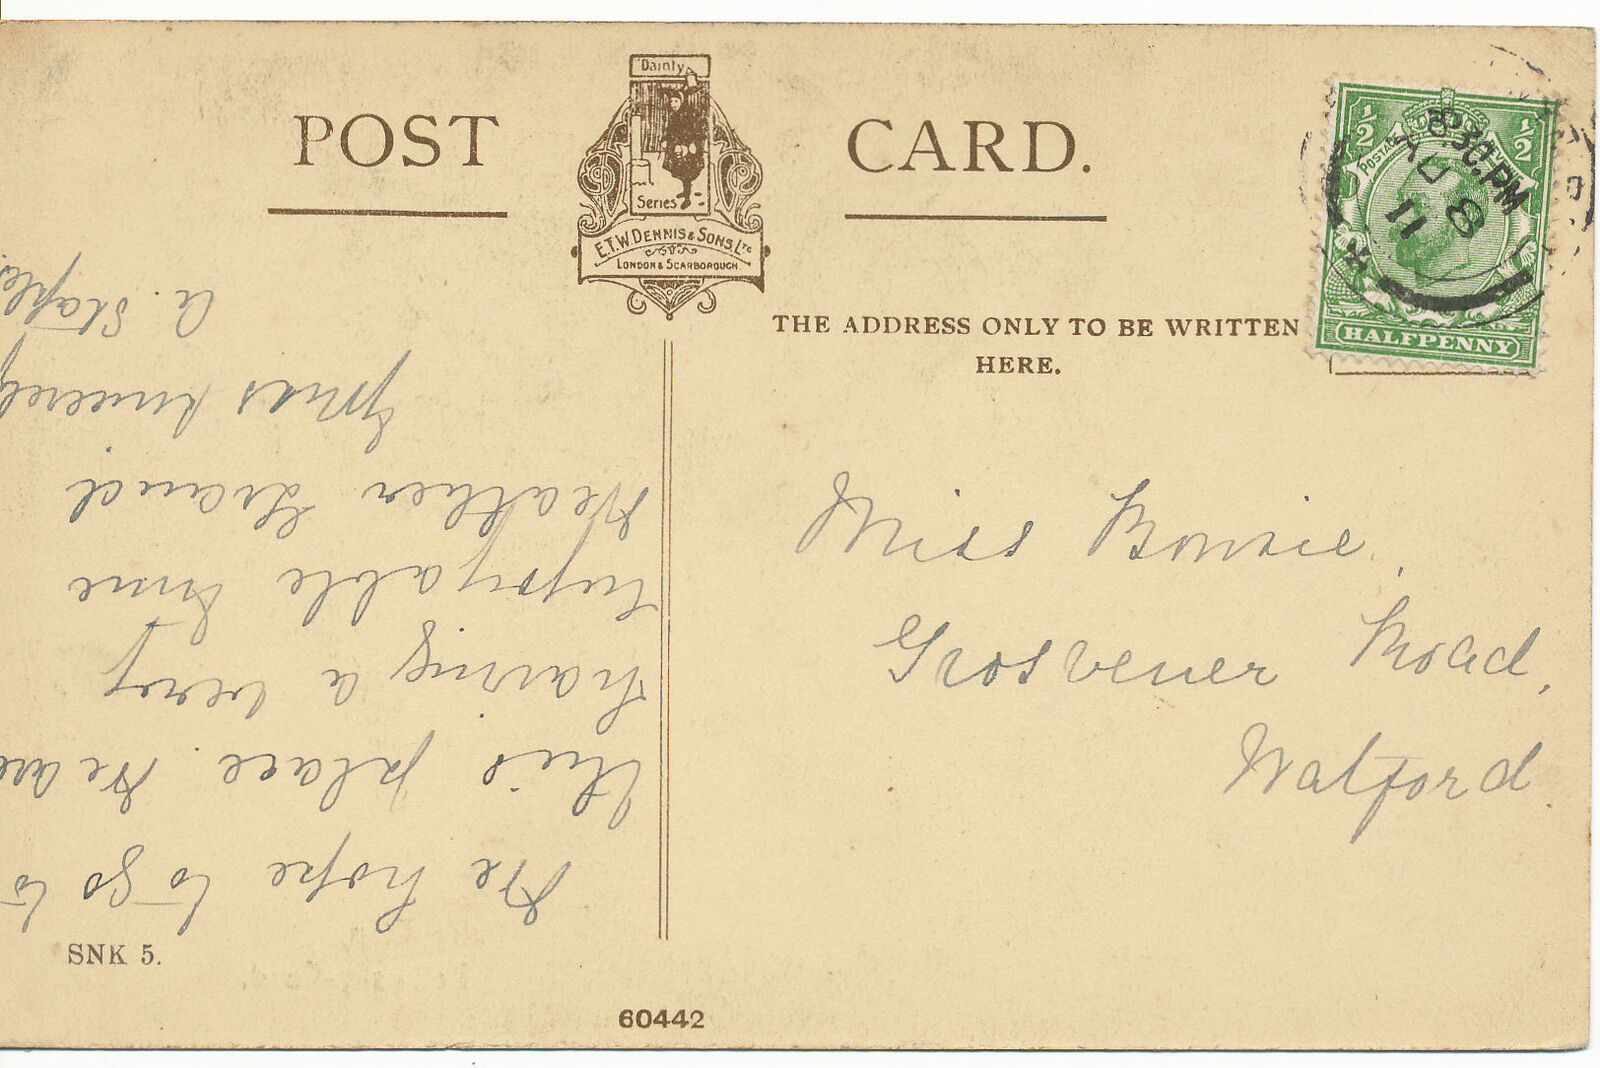 POST CARD.
Dainty
Series
E.T.W. DENNIS & SONS, LTD
LONDON & SCARBOROUGH.
THE ADDRESS ONLY TO BE WRITTEN
HERE.
½ ½
POSTAGE
HALFPENNY
8.30 PM
AU 8
11
Miss Bowie,
Grosvener Road,
Watford.
We hope to go to
this place. We are
having a very
enjoyable time
Weather grand
yours sincerely
A. Staples
SNK 5.
60442